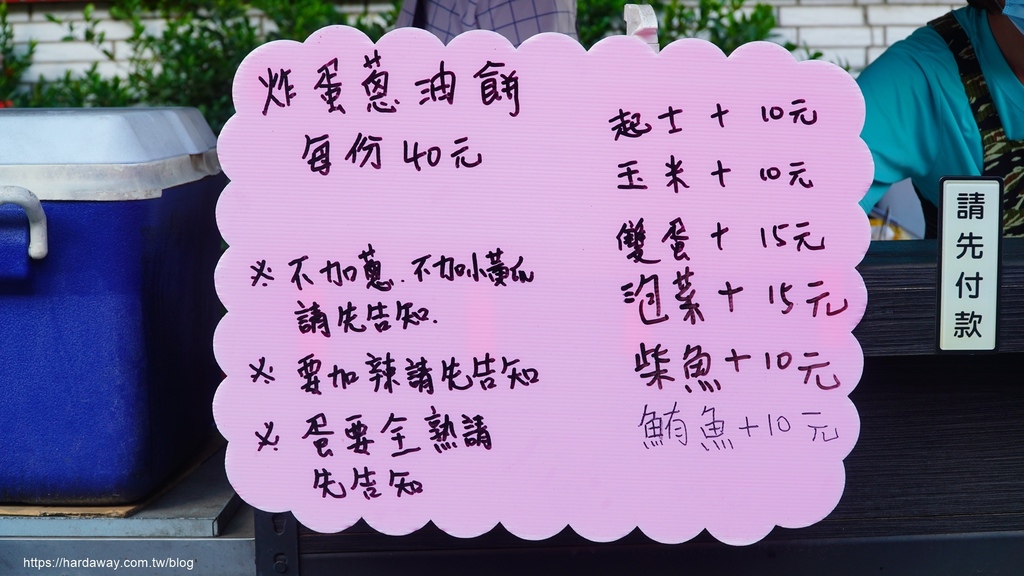 炸蛋蔥油餅
每份40元
※不加蔥.不加小黃瓜
請先告知.
※要加辣請先告知
※蛋要全熟請
先告知
起士+10元
玉米+10元
雙蛋+15元
泡菜+15元
柴魚+10元
鮪魚+10元
請先付款
https://hardaway.com.tw/blog